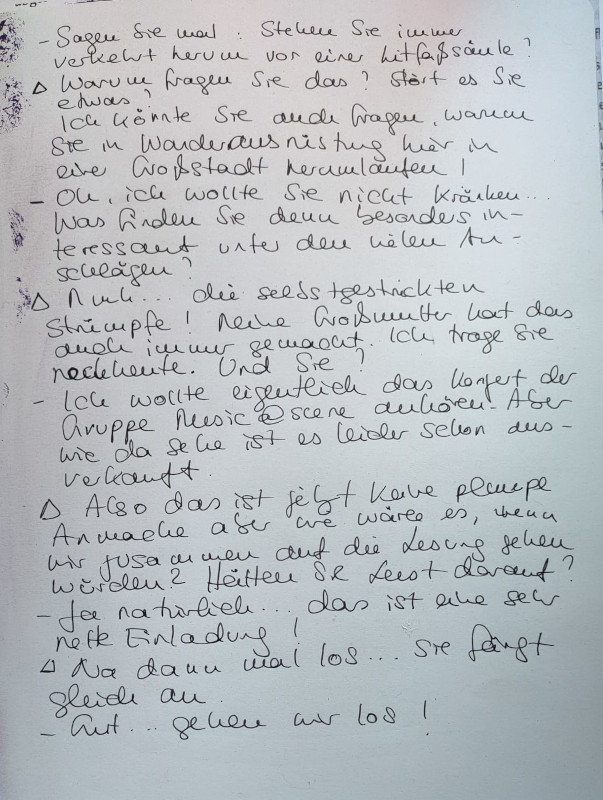 - Sagen Sie mal: Stehen Sie immer
verkehrt herum vor einer Litfaßsäule?
△ Warum fragen Sie das? Stört es Sie
etwas?
Ich könnte Sie auch fragen, warum
Sie in Wanderausrüstung hier in
einer Großstadt herumlaufen!
- Oh, ich wollte Sie nicht kränken...
Was finden Sie denn besonders in-
teressant unter den vielen An-
schlägen?
△ Nun... die selbstgestrickten
Strümpfe! Meine Großmutter hat das
auch immer gemacht. Ich trage sie
noch heute. Und Sie?
- Ich wollte eigentlich das Konzert der
Gruppe Music@scene anhören. Aber
wie da sehe ist es leider schon aus-
verkauft.
△ Also das ist jetzt keine plumpe
Anmache aber wie wäre es, wenn
wir zusammen auf die Lesung gehen
würden? Hätten Sie Lust darauf?
- Ja natürlich... das ist eine sehr
nette Einladung!
△ Na dann mal los... sie fängt
gleich an.
- Gut... gehen wir los!